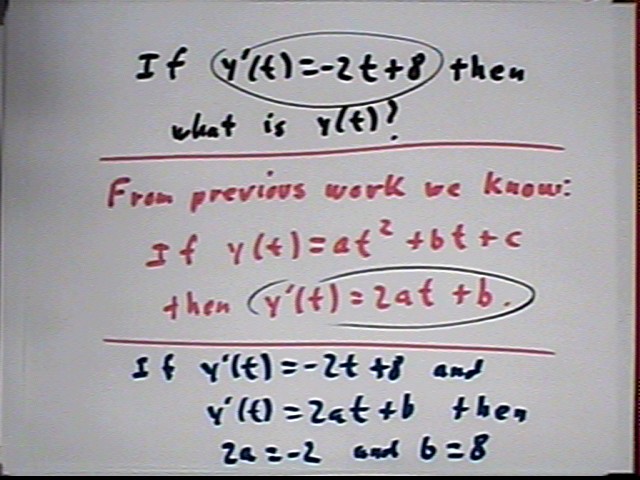 If y'(t)=-2t+8 then
what is y(t)?
From previous work we know:
If y(t)=at²+bt+c
then y'(t)=2at+b.
If y'(t)=-2t+8 and
y'(t)=2at+b then
2a=-2 and b=8